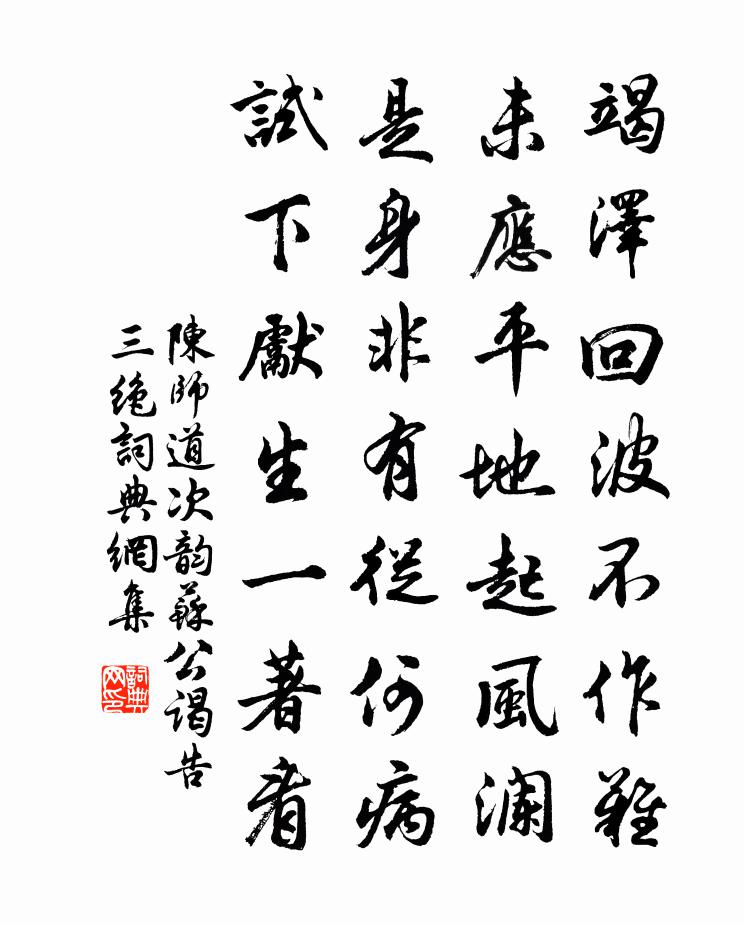 竭澤回波不作難
未應平地起風瀾
是身非有從何病
試下獻生一著看
陳師道次韵蘇公謁告
三絶詞典網集
詞典
网印